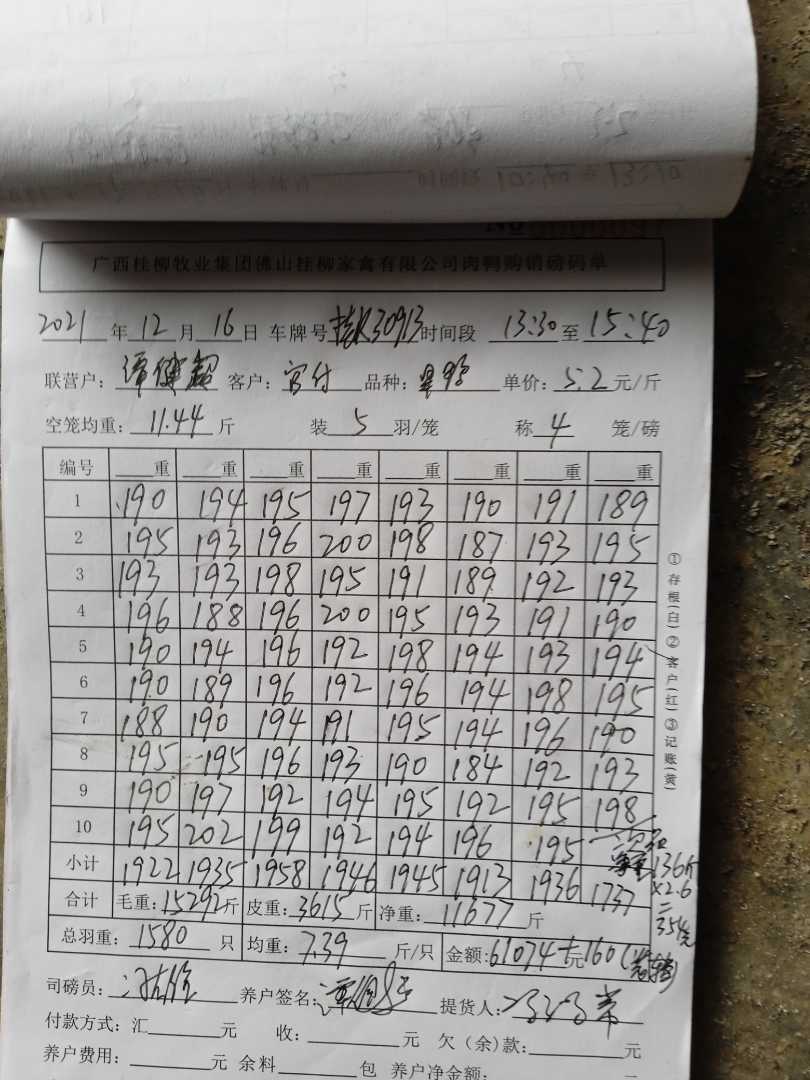 广西桂柳牧业集团佛山桂柳家禽有限公司肉鸭购销磅码单
2021 年 12 月 16 日 车牌号 桂K30913 时间段 13:30 至 15:40
联营户: 谭健超 客户: 品种: 单价: 5.2 元/斤
空笼均重: 11.44 斤 装 5 羽/笼 称 4 笼/磅
编号 重 重 重 重 重 重 重 重
1 190 194 195 197 193 190 191 189
2 195 193 196 200 198 187 193 195
3 193 193 198 195 191 189 192 193
4 196 188 196 200 195 193 191 190
5 190 194 196 192 198 194 193 194
6 190 189 196 192 196 194 198 195
7 188 190 194 191 195 194 196 190
8 195 195 196 193 190 184 192 193
9 190 197 192 194 195 192 195 198
10 195 202 199 192 194 196 195
小计 1922 1935 1958 1946 1945 1913 1936 1737
136斤
×2.6
=
354元
合计 毛重: 15292 斤 皮重: 3615 斤 净重: 11677 斤
总羽重: 1580 只 均重: 7.39 斤/只 金额: 61074 元 160
司磅员: 养户签名: 提货人:
付款方式: 汇 元 收: 元 欠(余)款: 元
养户费用: 元 余料 包 养户净金额:
①存根(白)②客户(红)③记账(黄)